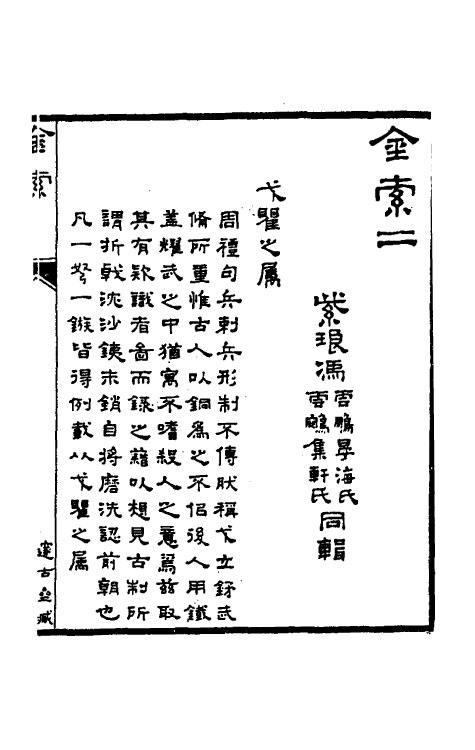 金索二
紫琅馮
雲鵬晏海氏
雲鵷集軒氏
同輯
戈瞿之屬
周禮句兵刺兵形制不傳肰稱戈立武
備所重惟古人以銅爲之不侣後人用鐵
蓋燿武之中猶寓不嗜殺人之意焉茲取
其有欵識者啚而錄之藉以想見古制所
謂折戟沈沙銕未銷自將磨洗認前朝也
凡一弩一鏃皆得例載入戈瞿之屬
金索
邃古齋藏